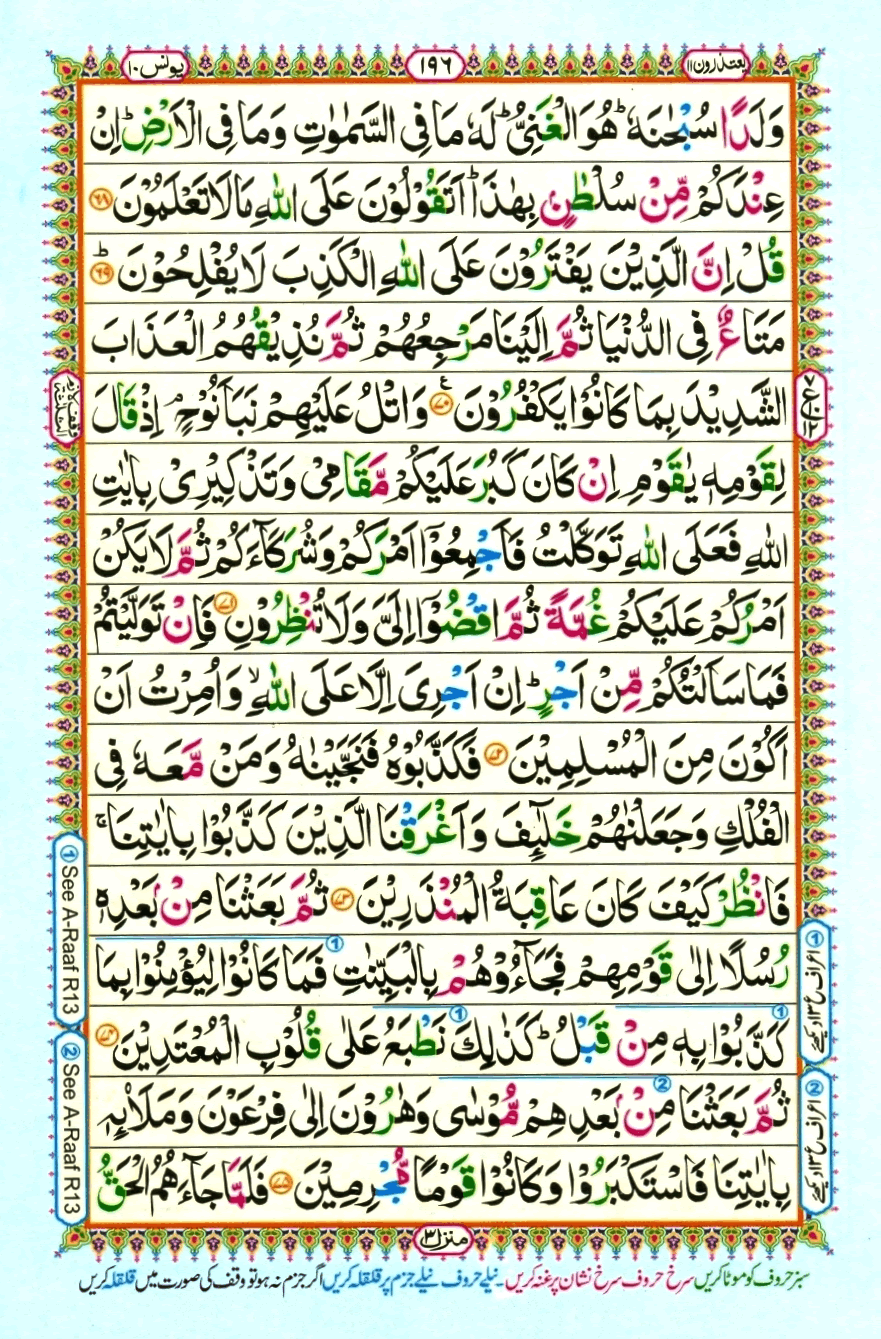 یعتذرون ۱۱
۱۹۶
یونس ۱۰
وَلَدًا سُبْحٰنَهٗ ؕ هُوَ الْغَنِیُّ ؕ لَهٗ مَا فِی السَّمٰوٰتِ وَمَا فِی الْاَرْضِ ؕ اِنْ
عِنْدَكُمْ مِّنْ سُلْطٰنٍۭ بِهٰذَا ؕ اَتَقُوْلُوْنَ عَلَی اللّٰهِ مَا لَا تَعْلَمُوْنَ ۶۸
قُلْ اِنَّ الَّذِیْنَ یَفْتَرُوْنَ عَلَی اللّٰهِ الْكَذِبَ لَا یُفْلِحُوْنَ ؕ ۶۹
مَتَاعٌ فِی الدُّنْیَا ثُمَّ اِلَیْنَا مَرْجِعُهُمْ ثُمَّ نُذِیْقُهُمُ الْعَذَابَ
الشَّدِیْدَ بِمَا كَانُوْا یَكْفُرُوْنَ ۷۰ وَاتْلُ عَلَیْهِمْ نَبَاَ نُوْحٍ ۘ اِذْ قَالَ
لِقَوْمِهٖ یٰقَوْمِ اِنْ كَانَ كَبُرَ عَلَیْكُمْ مَّقَامِیْ وَتَذْكِیْرِیْ بِاٰیٰتِ
اللّٰهِ فَعَلَی اللّٰهِ تَوَكَّلْتُ فَاَجْمِعُوْۤا اَمْرَكُمْ وَشُرَكَآءَكُمْ ثُمَّ لَا یَكُنْ
اَمْرُكُمْ عَلَیْكُمْ غُمَّةً ثُمَّ اقْضُوْۤا اِلَیَّ وَلَا تُنْظِرُوْنِ ۷۱ فَاِنْ تَوَلَّیْتُمْ
فَمَا سَاَلْتُكُمْ مِّنْ اَجْرٍ ؕ اِنْ اَجْرِیَ اِلَّا عَلَی اللّٰهِ ۙ وَاُمِرْتُ اَنْ
اَكُوْنَ مِنَ الْمُسْلِمِیْنَ ۷۲ فَكَذَّبُوْهُ فَنَجَّیْنٰهُ وَمَنْ مَّعَهٗ فِی
الْفُلْكِ وَجَعَلْنٰهُمْ خَلٰٓىِٕفَ وَاَغْرَقْنَا الَّذِیْنَ كَذَّبُوْا بِاٰیٰتِنَا ۚ
فَانْظُرْ كَیْفَ كَانَ عَاقِبَةُ الْمُنْذَرِیْنَ ۷۳ ثُمَّ بَعَثْنَا مِنْۢ بَعْدِهٖ
رُسُلًا اِلٰی قَوْمِهِمْ فَجَآءُوْهُمْ بِالْبَیِّنٰتِ فَمَا كَانُوْا لِیُؤْمِنُوْا بِمَا
كَذَّبُوْا بِهٖ مِنْ قَبْلُ ؕ كَذٰلِكَ نَطْبَعُ عَلٰی قُلُوْبِ الْمُعْتَدِیْنَ ۷۴
ثُمَّ بَعَثْنَا مِنْۢ بَعْدِهِمْ مُّوْسٰی وَهٰرُوْنَ اِلٰی فِرْعَوْنَ وَمَلَا۟ىِٕهٖ
بِاٰیٰتِنَا فَاسْتَكْبَرُوْا وَكَانُوْا قَوْمًا مُّجْرِمِیْنَ ۷۵ فَلَمَّا جَآءَهُمُ الْحَقُّ
1 اعراف ع ۱۳ دیکھئے
2 اعراف ع ۱۳ دیکھئے
1 See A-Raaf R13
2 See A-Raaf R13
منزل ۳
سبز حروف کو موٹا کریں سرخ حروف سرخ نشان پر غنہ کریں۔ نیلے حروف نیلے جزم پر قلقلہ کریں اگر جزم نہ ہو تو وقف کی صورت میں قلقلہ کریں